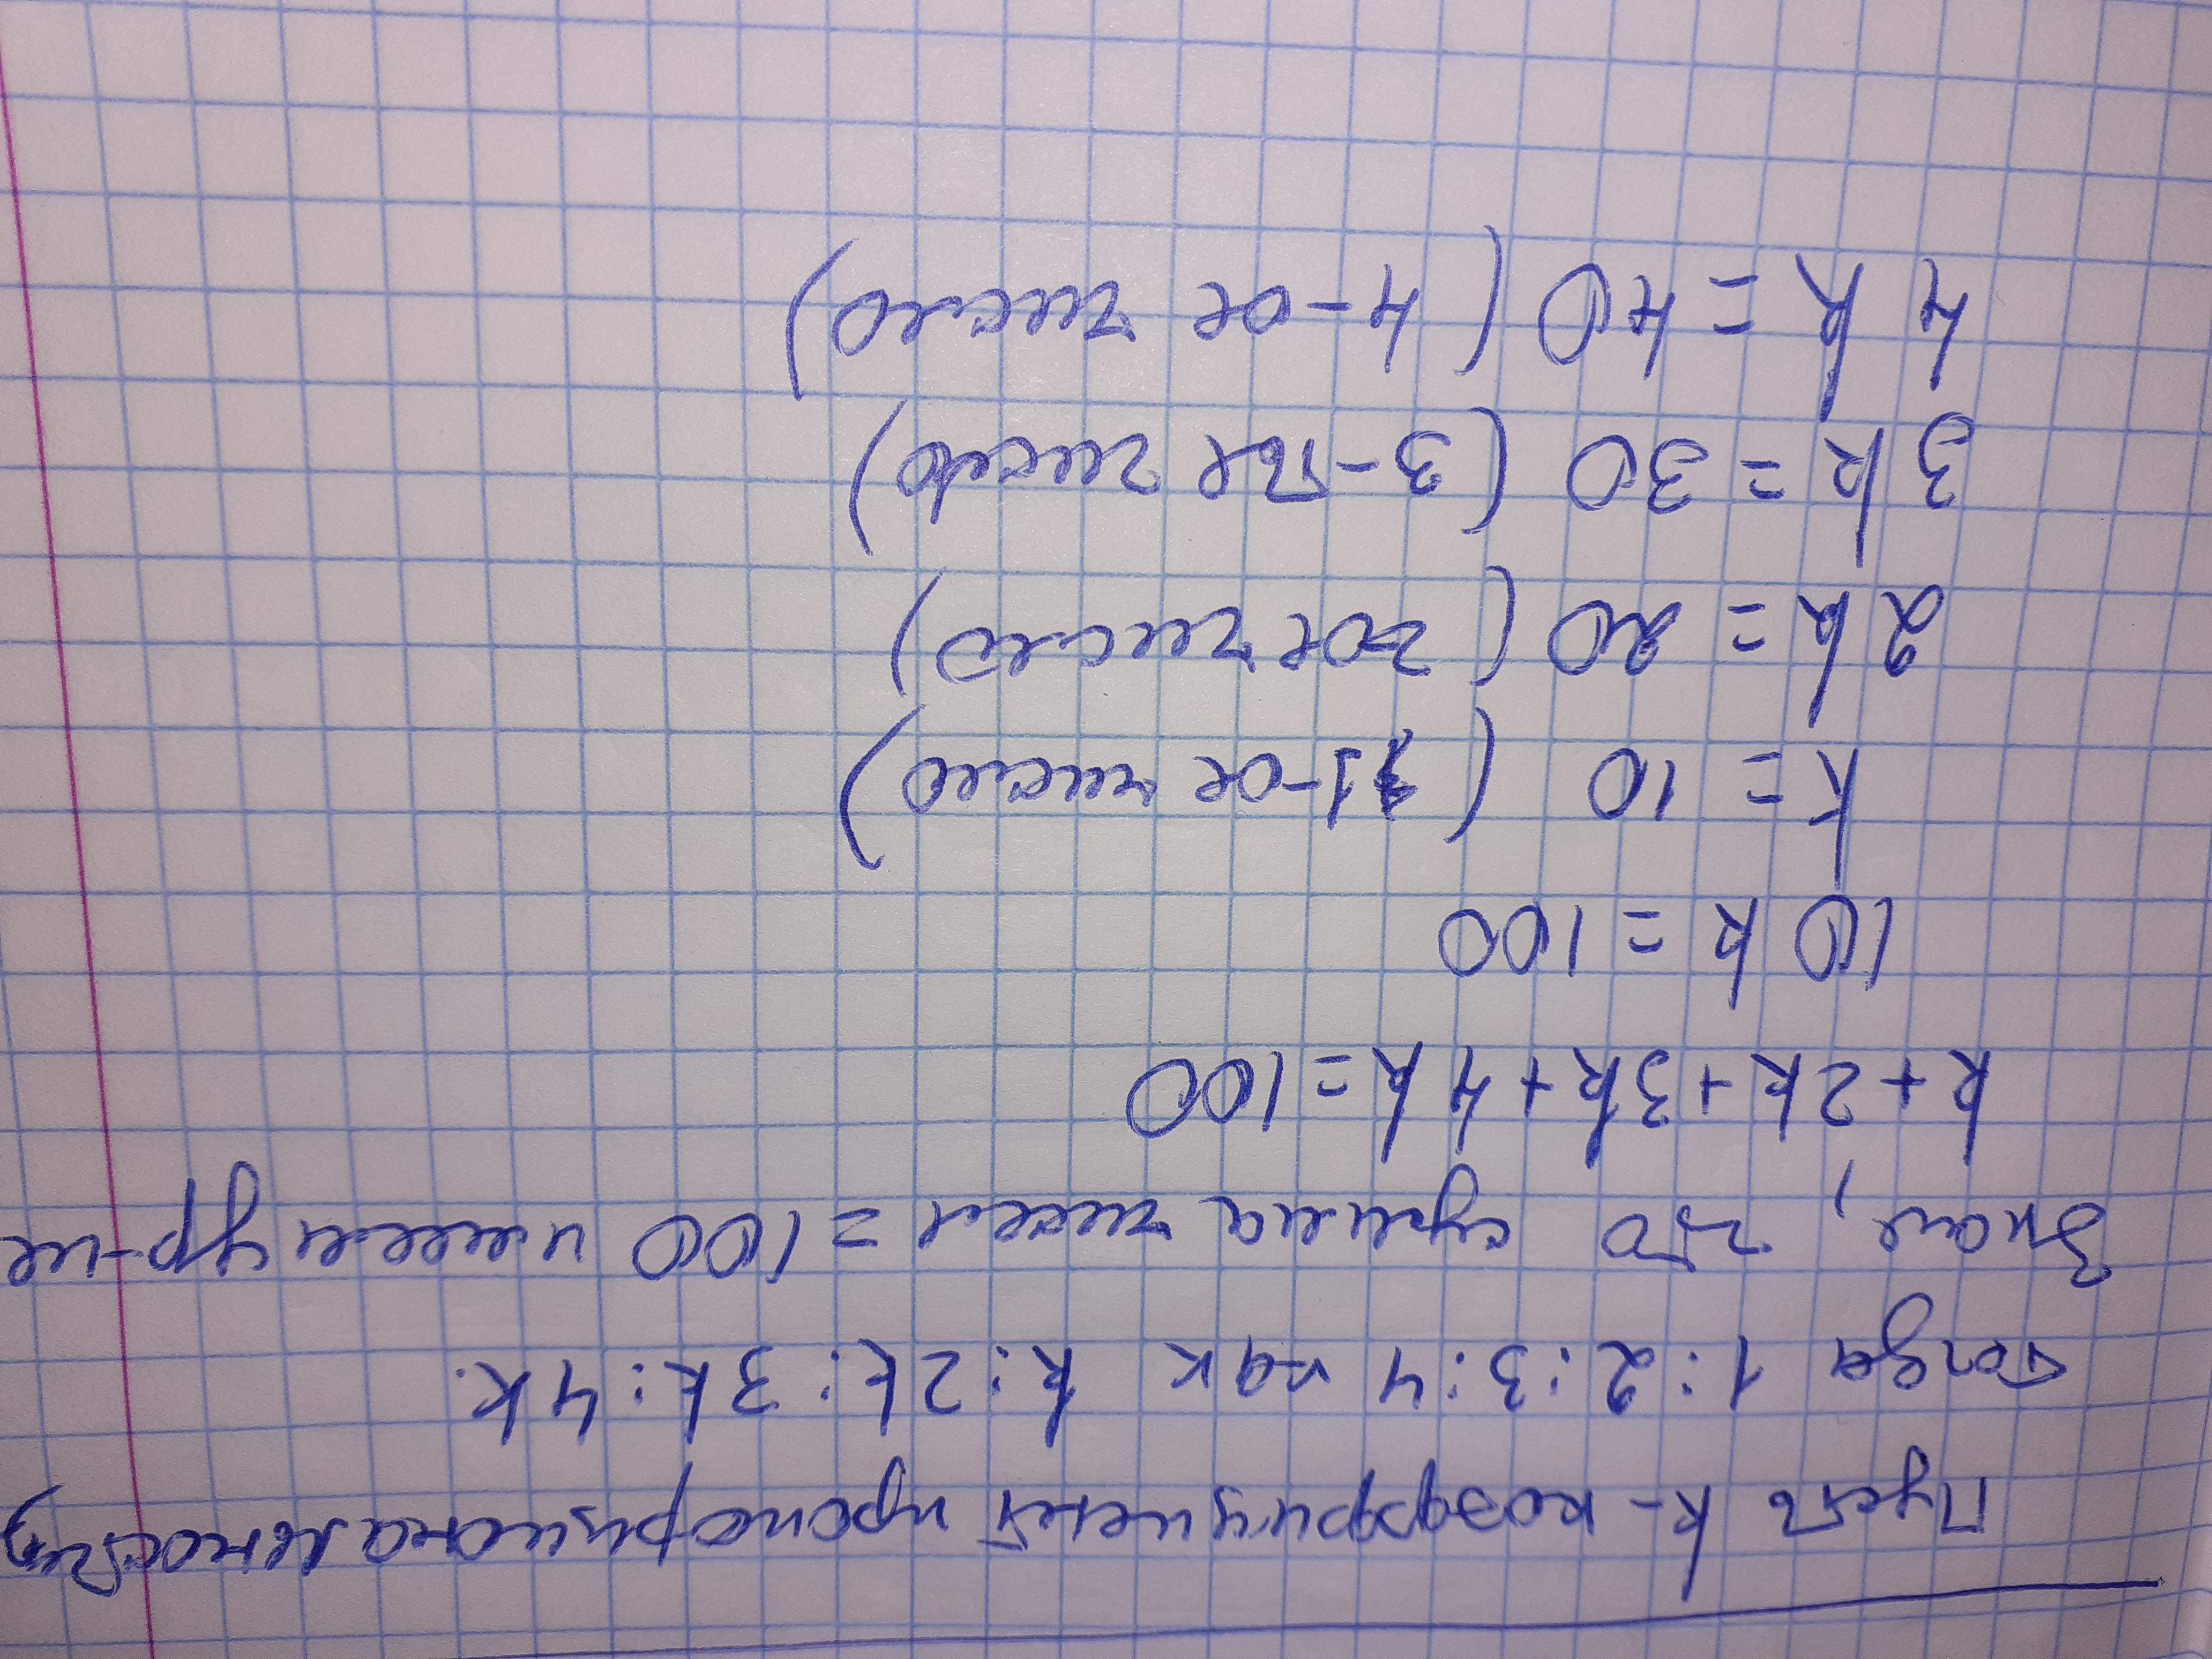 Пусть k - коэффициент пропорциональности,
тогда 1:2:3:4 как k:2k:3k:4k.
Зная, что сумма чисел = 100 имеем ур-ие
k+2k+3k+4k=100
10k=100
k=10 (1-ое число)
2k=20 (2ое число)
3k=30 (3-тье число)
4k=40 (4-ое число)